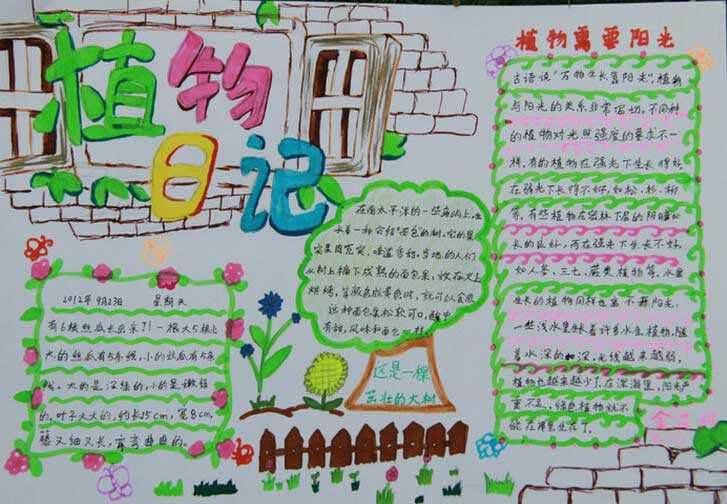 植物
日记
植物需要阳光
古语说"万物生长靠阳光",植物
与阳光的关系非常密切。不同种
的植物对光照强度的要求不一
样,有的植物在强光下生长得好
在弱光下长得不好,如松、杉、柳
等,有些植物在密林下层的阴暗处
长的良好,而在强光下生长不好,
如人参、三七、蕨类植物等,水里
生长的植物同样也离不开阳光。
一些浅水里生长着许多水生植物,随
着水深的加深,光线越来越弱,
植物也越来越少了,在深海里,阳光严
重不足,绿色植物就不
能在那里生存了。
在南太平洋的一些岛屿上,生
长着一种会结"面包"的树。它的果
实果肉充实,味道香甜,当地的人们
从树上摘下成熟的面包果,放在火上
烘烤,等
这种面包果松软可口,酸中
有甜,风味和面包
这是一棵
茁壮的大树
2012年9月23日 星期天
有6棵丝瓜长出来了!一根大5根小
大的丝瓜有5条线,小的丝瓜有5条
线。大的是深绿的,小的是嫩绿
的。叶子大大的,约长15cm,宽8cm,
藤又细又长,弯弯曲曲的。